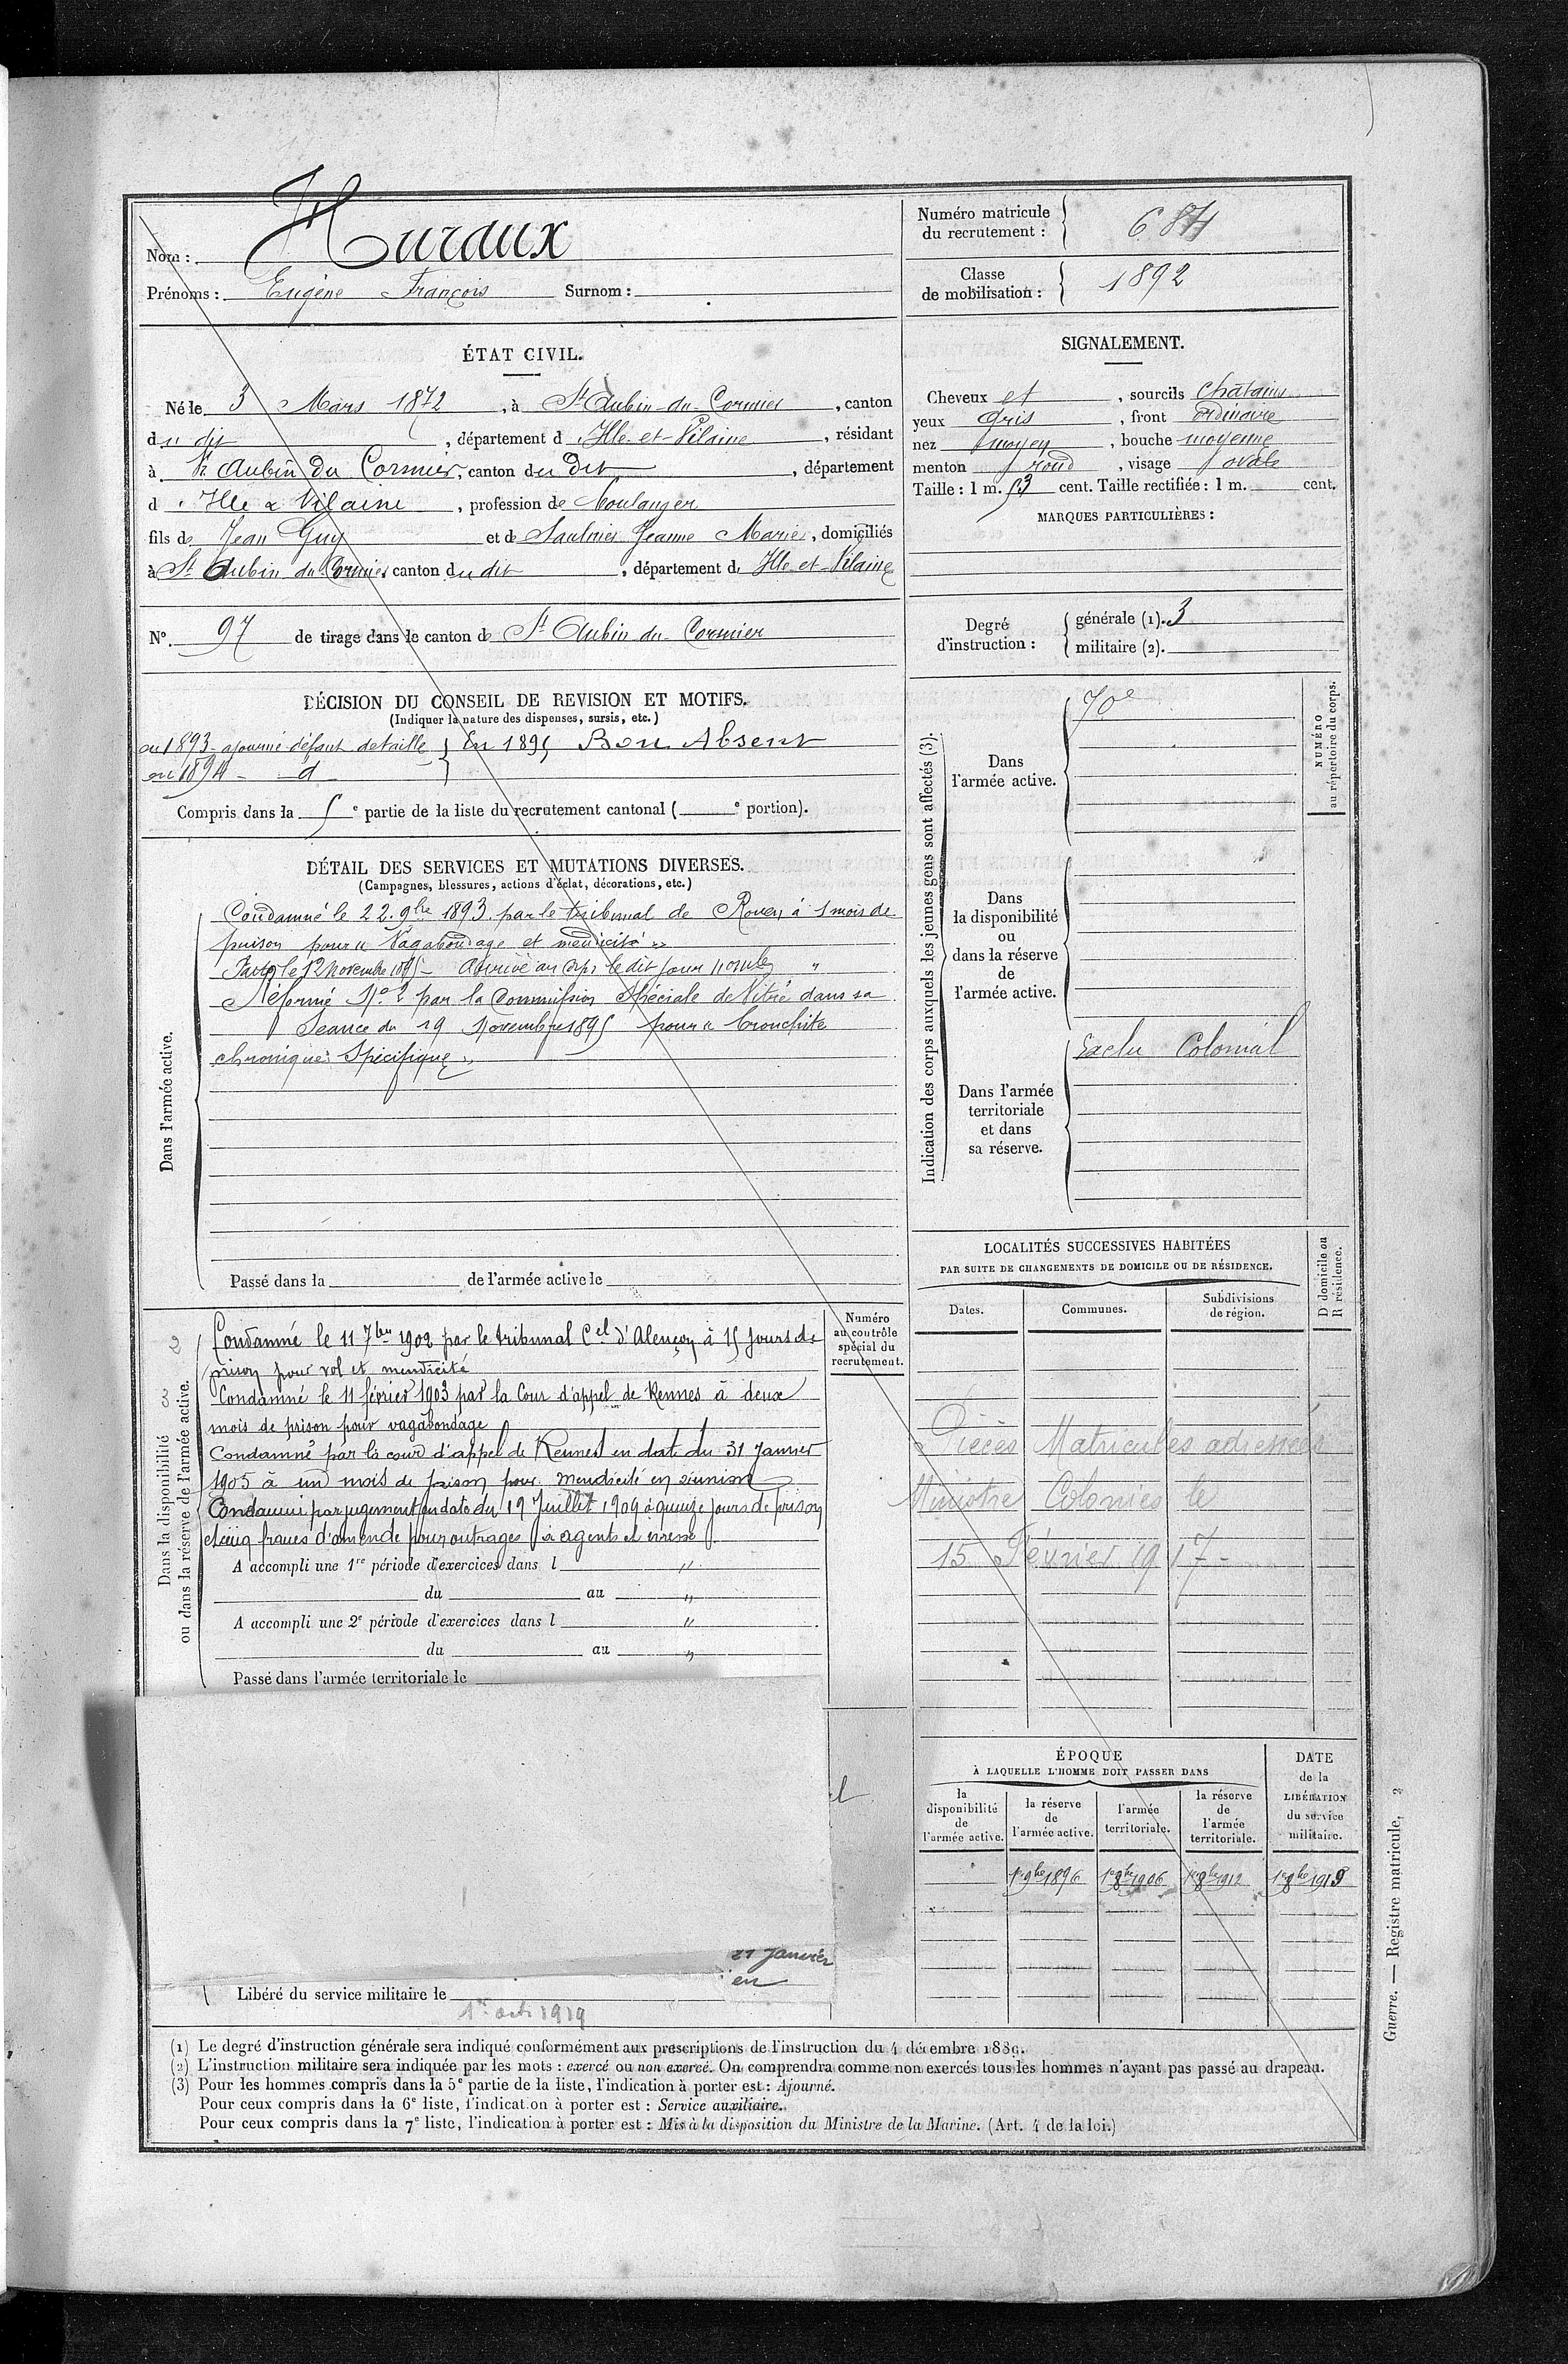 Nom : Huraux
Prénoms : Eugène François Surnom :
Numéro matricule
du recrutement :
Classe
de mobilisation : 1892
ÉTAT CIVIL.
Né le 3 Mars 1872, à St Aubin-du-Cormier, canton
du dit, département d'Ille-et-Vilaine, résidant
à St Aubin du Cormier, canton du dit, département
d'Ille & Vilaine, profession de boulanger
fils de Jean Guy et de Saulnier Jeanne Marie, domiciliés
à St Aubin du Cormier, canton du dit, département d'Ille-et-Vilaine
N° 97 de tirage dans le canton de St Aubin-du-Cormier
SIGNALEMENT.
Cheveux et, sourcils châtains
yeux gris, front ordinaire
nez moyen, bouche moyenne
menton rond, visage ovale
Taille : 1 m. 53 cent. Taille rectifiée : 1 m. cent.
MARQUES PARTICULIÈRES :
Degré
d'instruction :
générale (1). 3
militaire (2).
DÉCISION DU CONSEIL DE REVISION ET MOTIFS.
(Indiquer la nature des dispenses, sursis, etc.)
en 1893 ajourné défaut de taille } En 1895 Bon Absent
en 1894 - d
Compris dans la 5e partie de la liste du recrutement cantonal ( e portion).
DÉTAIL DES SERVICES ET MUTATIONS DIVERSES.
(Campagnes, blessures, actions d'éclat, décorations, etc.)
Dans l'armée active.
Condamné le 22 9bre 1893 par le tribunal de Rouen à 1 mois de
prison pour « Vagabondage et mendicité »
le 12 Novembre 1895 - Arrivé au corps le dit jour
Réformé N° 2 par la Commission Spéciale de Vitré dans sa
Séance du 19 Novembre 1895 pour « bronchite
chronique Spécifique »
Passé dans la de l'armée active le
Indication des corps auxquels les jeunes gens sont affectés (3).
NUMÉRO
au répertoire du corps.
Dans
l'armée active.
70e
Dans
la disponibilité
ou
dans la réserve
de
l'armée active.
Dans l'armée
territoriale
et dans
sa réserve.
Exclu Colonial
LOCALITÉS SUCCESSIVES HABITÉES
PAR SUITE DE CHANGEMENTS DE DOMICILE OU DE RÉSIDENCE.
D domicile ou
R résidence.
Dates. Communes. Subdivisions
de région.
Pièces Matricules adressées
Ministre Colonies le
15 Février 1917 -
Dans la disponibilité
ou dans la réserve de l'armée active.
Numéro
au contrôle
spécial du
recrutement.
Condamné le 11 7bre 1902 par le tribunal Cel d'Alençon à 15 jours de
prison pour vol et mendicité
Condamné le 11 février 1903 par la Cour d'appel de Rennes à deux
mois de prison pour vagabondage
Condamné par la cour d'appel de Rennes en date du 31 Janvier
1905 à un mois de prison pour mendicité en réunion
Condamné par jugement en date du 19 Juillet 1909 à quinze jours de prison
et cinq francs d'amende pour outrages à agents et ivresse
A accompli une 1re période d'exercices dans l "
du au "
A accompli une 2e période d'exercices dans l "
du au "
Passé dans l'armée territoriale le
21 Janvier
en
Libéré du service militaire le
1er oct 1919
ÉPOQUE
À LAQUELLE L'HOMME DOIT PASSER DANS
DATE
de la
LIBÉRATION
du service
militaire.
la
disponibilité
de
l'armée active.
la réserve
de
l'armée active.
l'armée
territoriale.
la réserve
de
l'armée
territoriale.
1er 9bre 1896 1er 8bre 1906 1er 8bre 1912 1er 8bre 1919
(1) Le degré d'instruction générale sera indiqué conformément aux prescriptions de l'instruction du 4 décembre 1889.
(2) L'instruction militaire sera indiquée par les mots : exercé ou non exercé. On comprendra comme non exercés tous les hommes n'ayant pas passé au drapeau.
(3) Pour les hommes compris dans la 5e partie de la liste, l'indication à porter est : Ajourné.
Pour ceux compris dans la 6e liste, l'indication à porter est : Service auxiliaire.
Pour ceux compris dans la 7e liste, l'indication à porter est : Mis à la disposition du Ministre de la Marine. (Art. 4 de la loi.)
Guerre. — Registre matricule, 2